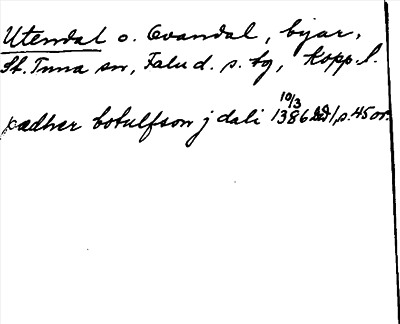 Utendal o. Ovandal, byar,
St. Tuna sn, Falu d. s. bg, Kopp. l.
pædher botulfson j dali 10/3 1386 1, s. 45 or.